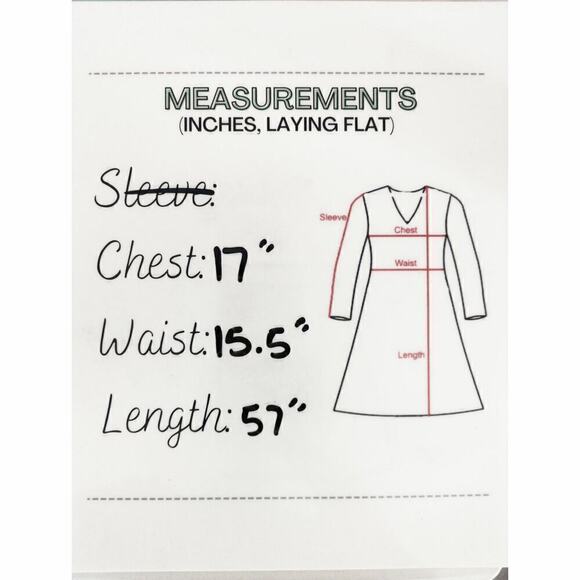 MEASUREMENTS
(INCHES, LAYING FLAT)
Sleeve:
Chest: 17"
Waist: 15.5"
Length: 57"
Sleeve
Chest
Waist
Length